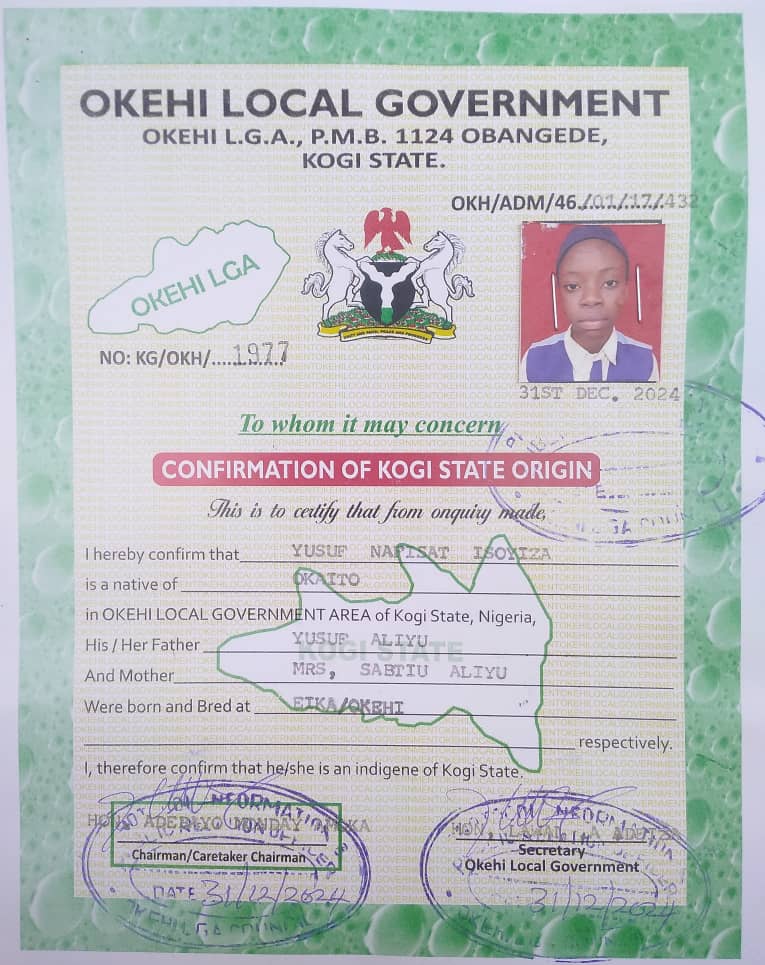 OKEHI LOCAL GOVERNMENT
OKEHI L.G.A., P.M.B. 1124 OBANGEDE,
KOGI STATE.
OKH/ADM/46./01/17/432
OKEHI LGA
NO: KG/OKH/....1977
31ST DEC. 2024
To whom it may concern
CONFIRMATION OF KOGI STATE ORIGIN
This is to certify that from onquiry made,
I hereby confirm that YUSUF NAFISAT ISOYIZA
is a native of OKAITO
in OKEHI LOCAL GOVERNMENT AREA of Kogi State, Nigeria,
His / Her Father YUSUF ALIYU
KOGI STATE
And Mother MRS, SABTIU ALIYU
Were born and Bred at EIKA/OKEHI
respectively.
I, therefore confirm that he/she is an indigene of Kogi State.
INFORMATION
HON. ADEDAYO MONDAY
Chairman/Caretaker Chairman
DATE 31/12/2024
OKEHI LGA COUNCIL
INFORMATION
HON,
Secretary
Okehi Local Government
31/12/2024